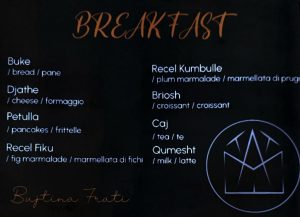 BREAKFAST
Buke
/ bread / pane
Djathe
/ cheese / formaggio
Petulla
/ pancakes / frittelle
Recel Fiku
/ fig marmalade / marmellata di fichi
Recel Kumbulle
/ plum marmalade / marmellata di prugn
Briosh
/ croissant / croissant
Caj
/ tea / te
Qumesht
/ milk / latte
Bujtina Frati